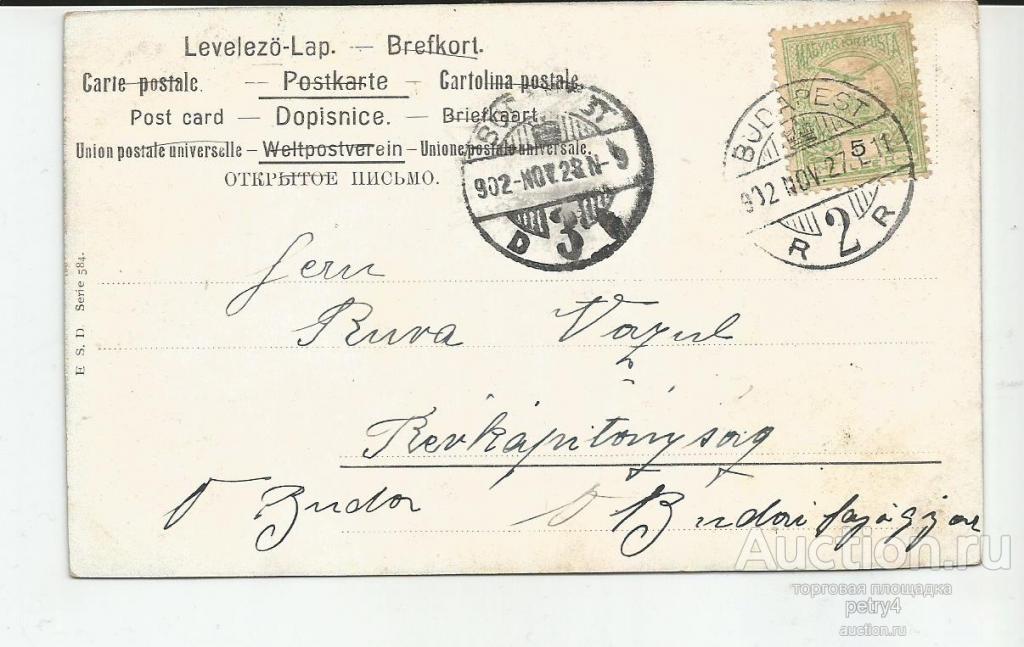 Levelező-Lap. — Brefkort.
Carte postale. — Postkarte — Cartolina postale.
Post card — Dopisnice. — Briefkaart
Union postale universelle — Weltpostverein — Unione postale universale.
ОТКРЫТОЕ ПИСЬМО.
MAGYAR KIR. POSTA
5
BUDAPEST
902 NOV. 27. 11
R 2 R
BUDAPEST
902-NOV. 28 N-6
D 3
E. S. D. Serie 584.
Ruva Vazul
Révkápitányság
Buda
Budai
Auction.ru
торговая площадка
petry4
auction.ru